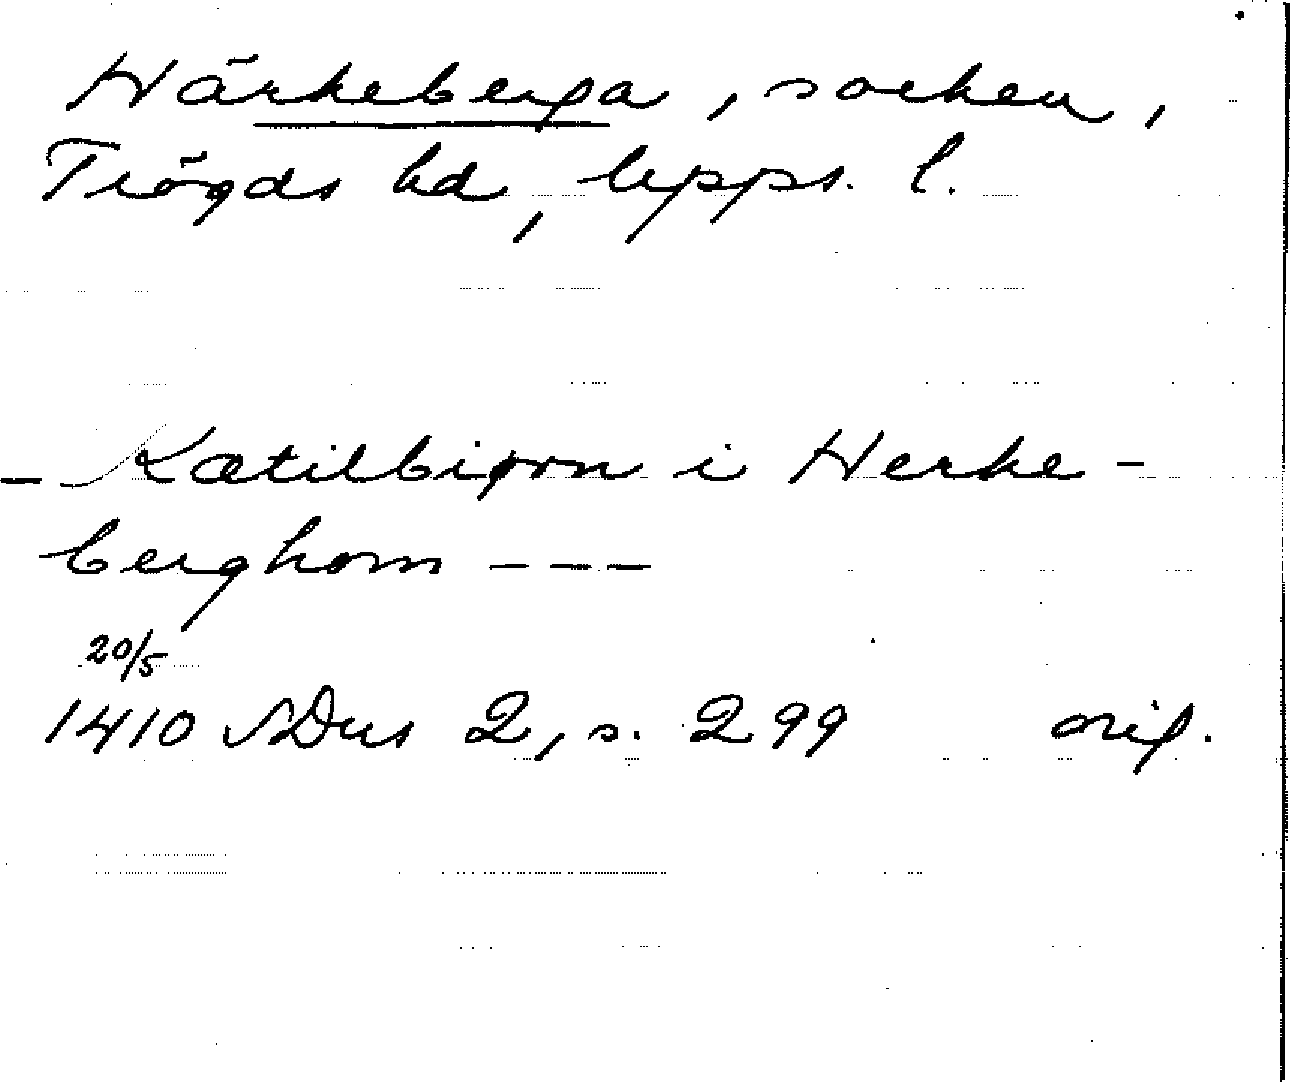 Härkeberga, socken,
Trögds hd, Upps. l.
- Kætilbiørn i Herke-
berghom ---
20/5
1410 SDns 2, s. 299 orig.